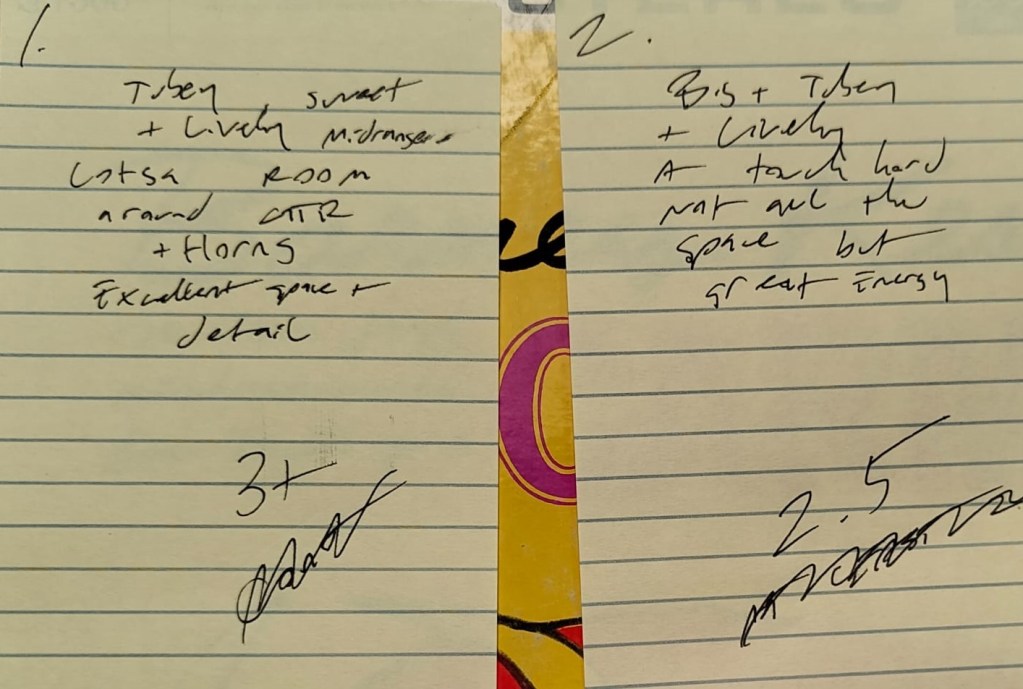 1.
Tubey, sweet
+ Lively midrange
Lotsa ROOM
around GTR
+ Horns
Excellent space +
detail
3+
2.
Big + Tubey
+ Lively
A touch hard
Not all the
space but
great Energy
2.5